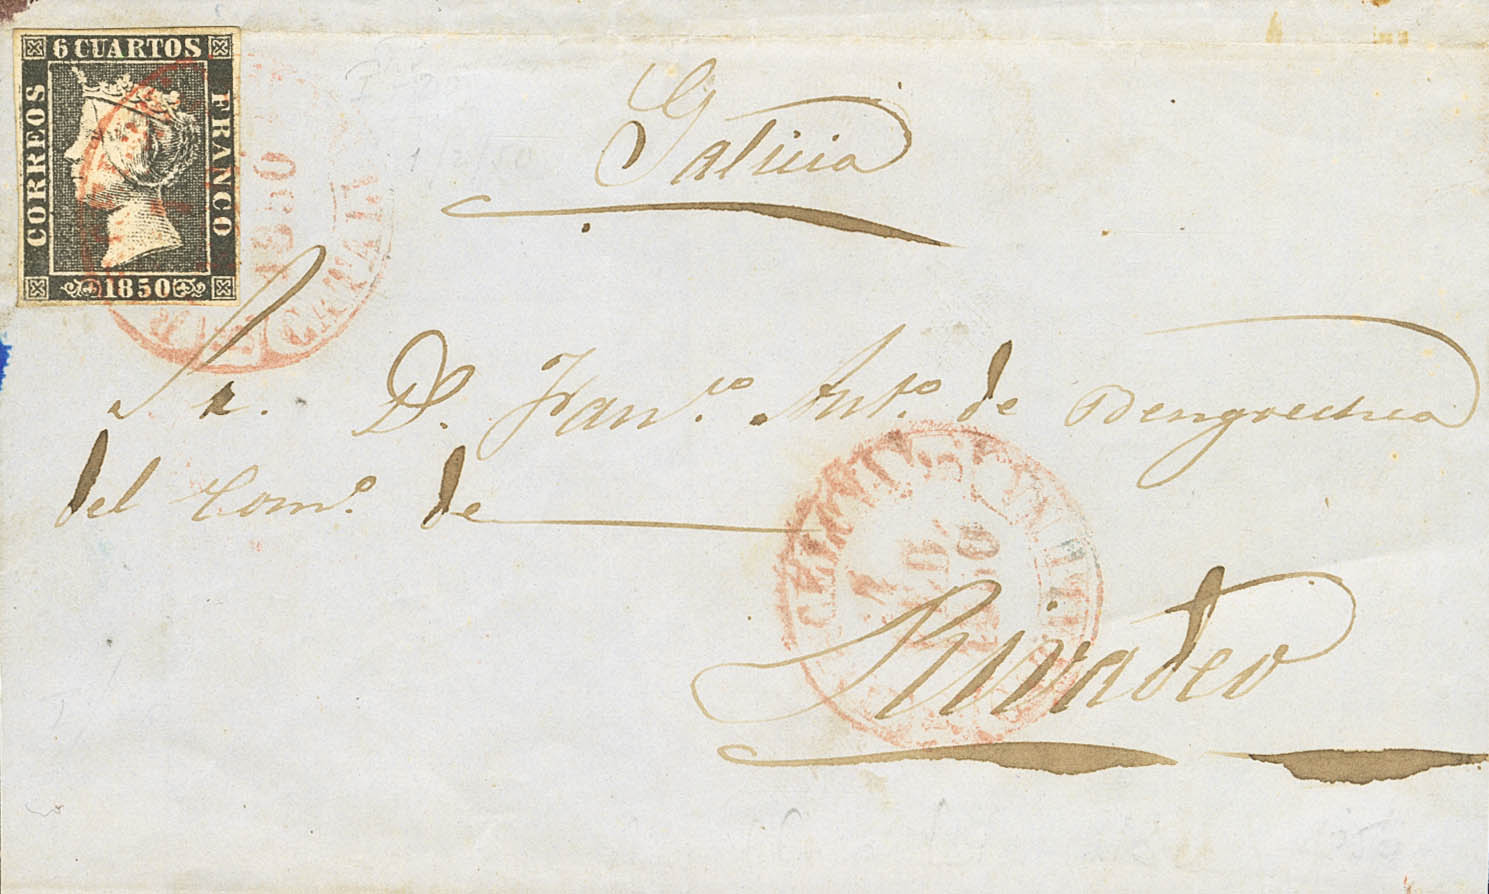 6 CUARTOS
CORREOS
FRANCO
1850
1850
CATAL
Galicia
Sr. D. Franco. Anto. de Bengoechea
del Como. de
Rivadeo